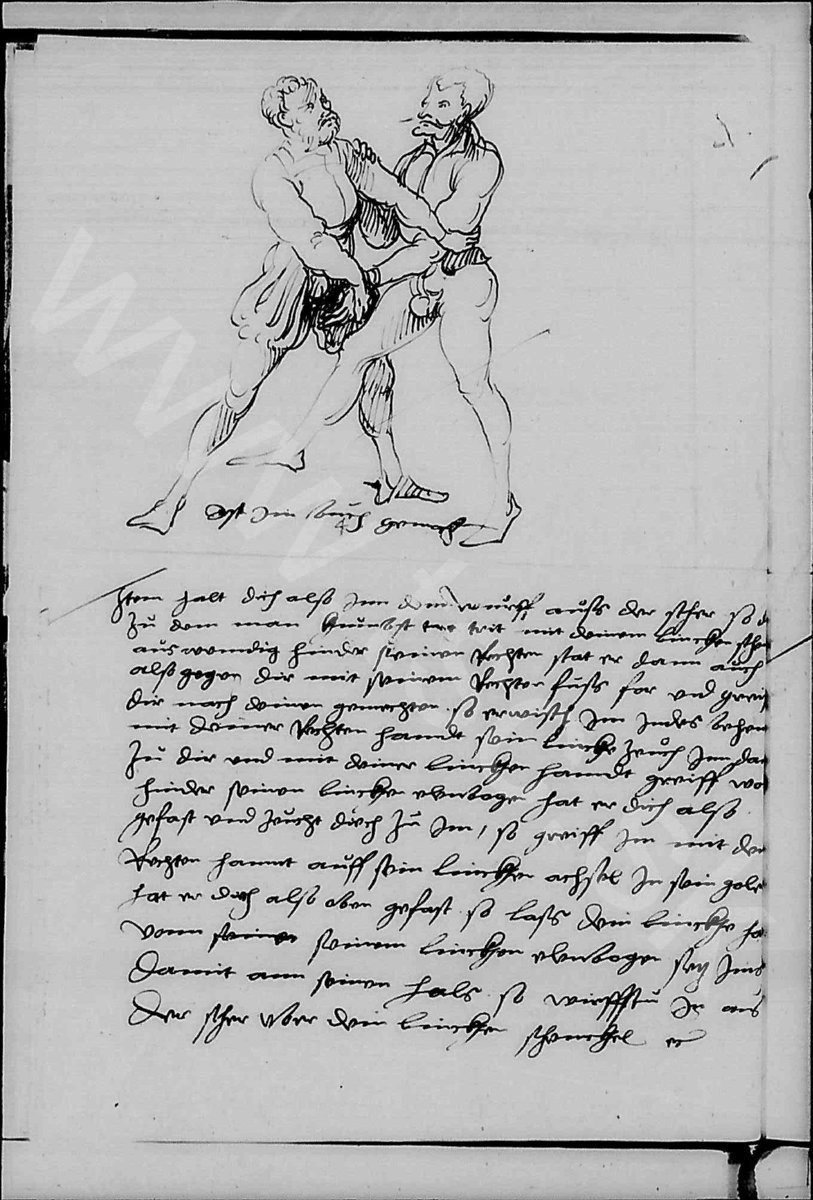 Ist Im buch gemacht
Item halt dich also Inn dem wurff auss der scher so d
Zu dem man kumbst trit mit deinem lincken schen
auswendig hinder seinen Rechten stat er dann auch
also gegen dir mit seinem Rechten fuss for vnd greif
dir nach deinen gemechten so erwisch Im Indes behen
mit deiner Rechten handt sein lincke zeuch Inn dar
Zu dir vnd mit deiner lincken handt greiff wol
hinder seinen lincken elnbogen hat er dich also
gefast vnd zeucht dich zu Im, so greiff Im mit der
Rechten hannt auff sein lincken achsel In sein goler
hat er dich also oben gefast so lass dein lincke ha
vonn seinem lincken elnbogen setz Ims
damit ann seinen hals so wirffstu In aus
der scher vber dein lincken schenckel